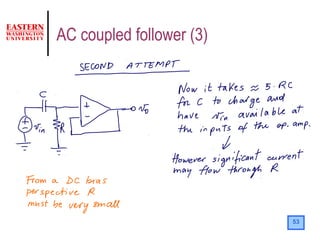 EASTERN
WASHINGTON
UNIVERSITY
AC coupled follower (3)
SECOND ATTEMPT
C
R
+
-
vo
+
-
vin
Now it takes ≈ 5·RC
for C to charge and
have vin available at
the inputs of the op. amp.
However significant current
may flow through R
From a DC bias
perspective R
must be very small
53